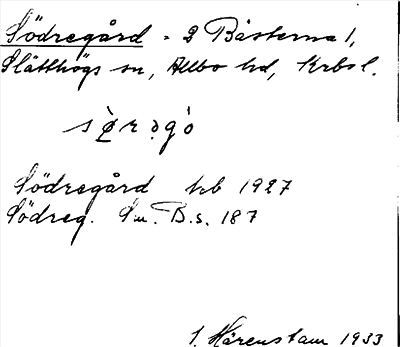 Södregård - 2 Båsterna 1,
Slätthögs sn, Allbo hd, Krbs l.
sø̀rəgò
Södregård kb 1927
Södreg. Sm. B.s. 187
1. Härenstam 1933